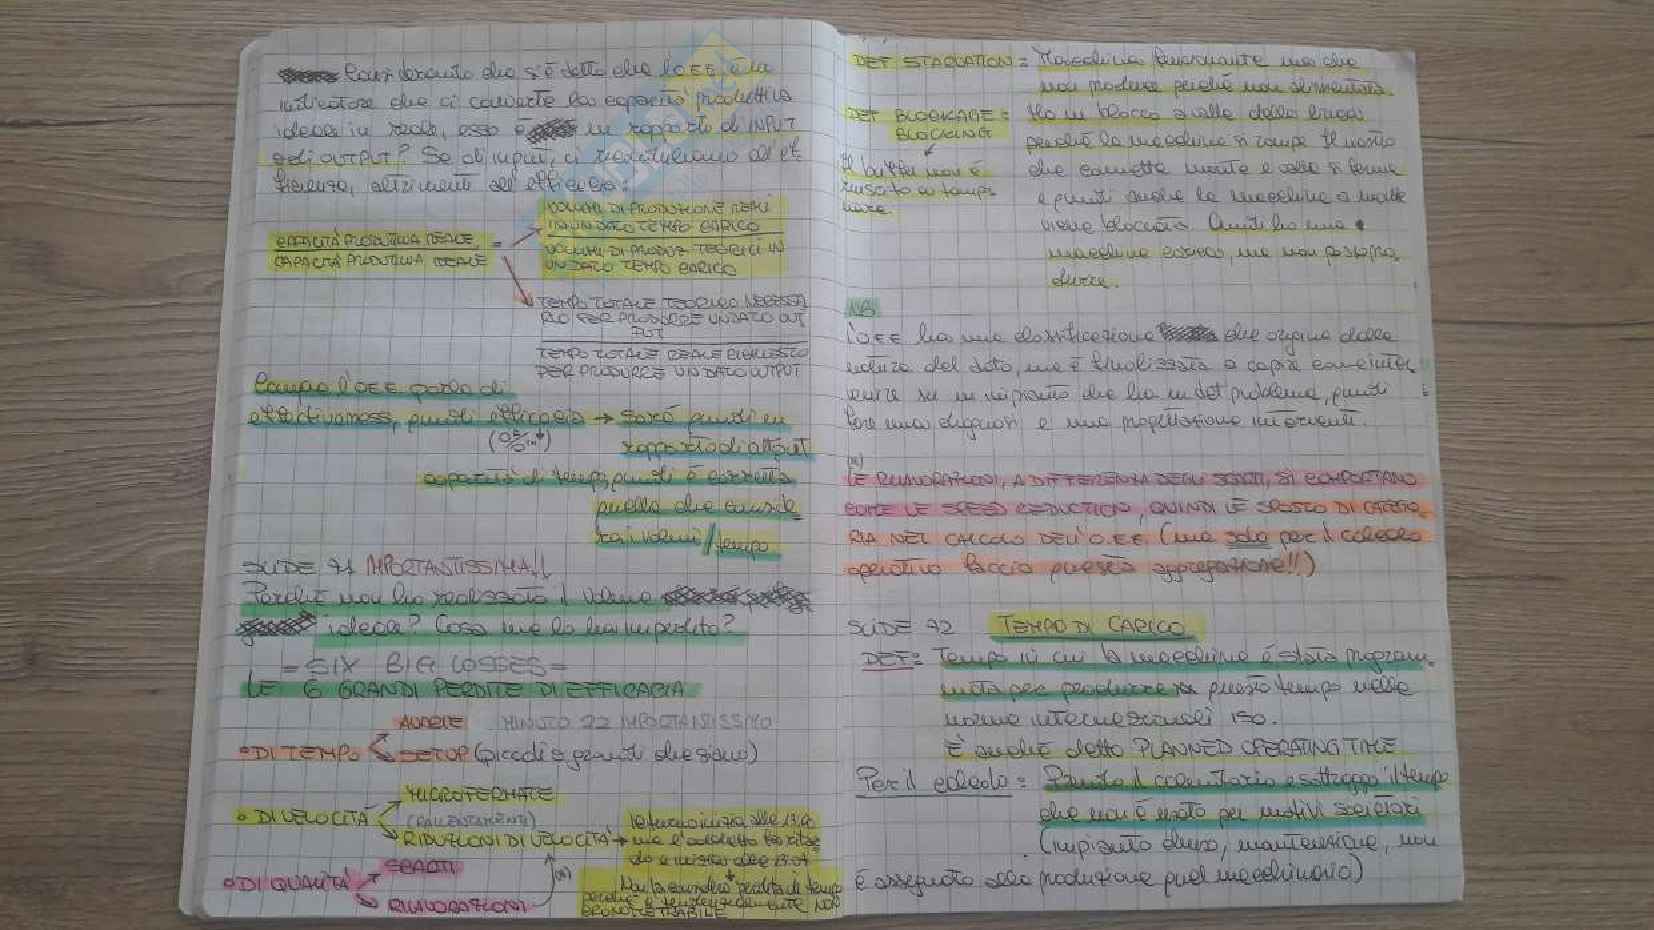 Considerato che si è detto che l'OEE è un
indicatore che ci converte la capacità produttiva
ideale in reale, esso è un rapporto di INPUT
o di OUTPUT? Se di input, ci riconduciamo all'ef
ficienza, altrimenti all'efficacia:
CAPACITÀ PRODUTTIVA REALE
CAPACITÀ PRODUTTIVA IDEALE
=
VOLUMI DI PRODUZIONE REALI
IN UN DATO TEMPO CARICO
VOLUMI DI PRODUZ TEORICI IN
UN DATO TEMPO CARICO
TEMPO TOTALE TEORICO NECESSA
RIO PER PRODURRE UN DATO OUT
PUT
TEMPO TOTALE REALE
PER PRODURRE UN DATO OUTPUT
l'OEE parla di
effectiveness, quindi efficacia → sarà quindi un
rapporto di output
capacità di tempo, quindi è corretta
quella che considera
i volumi/tempo
SLIDE 71 IMPORTANTISSIMA!!
Perché non ho realizzato il volume
ideale? Cosa me lo ha impedito?
= SIX BIG LOSSES =
LE 6 GRANDI PERDITE DI EFFICACIA
AVARIE MINUTO 22 IMPORTANTISSIMO
• DI TEMPO
SETUP (piccoli o grandi che siano)
MICROFERMATE
• DI VELOCITÀ
(RALLENTAMENTI)
RIDUZIONI DI VELOCITÀ →
SCARTI
• DI QUALITÀ
RILAVORAZIONI
(*)
perdita di tempo
perché è tendenzialmente NON
CRONOMETRABILE
DEF STARVATION = Macchina funzionante ma che
non produce perché non alimentata.
DEF BLOCKAGE =
BLOCKING
Ho un blocco a valle della linea
perché la macchina si rompe. Il nastro
che connette monte e valle si ferma
e quindi anche la macchina a monte
viene bloccata. Quindi ho una
macchina carica, ma non posso pro
durre.
Il buffer non è
riuscito a tampo
nare.
NB
l'OEE ha una classificazione che origina dalla
natura del dato, ma è finalizzata a capire come inter
venire su un impianto che ha un det problema, quindi
fare una diagnosi e una progettazione interventi.
(*)
LE RILAVORAZIONI, A DIFFERENZA DEGLI SCARTI, SI COMPORTANO
COME LE SPEED REDUCTION, QUINDI LE SPOSTO DI CATEGO
RIA NEL CALCOLO DELL'O.E.E (ma solo per il calcolo
operativo faccio questa aggregazione!!)
SLIDE 72 TEMPO DI CARICO
DEF: Tempo in cui la macchina è stata program
mata per produrre questo tempo nelle
norme internazionali ISO.
È anche detto PLANNED OPERATING TIME
Per il calcolo = Prendo il calendario e sottraggo il tempo
che non è usato per motivi societari
(impianto chiuso, manutenzione, non
è assegnato alla produzione quel macchinario)